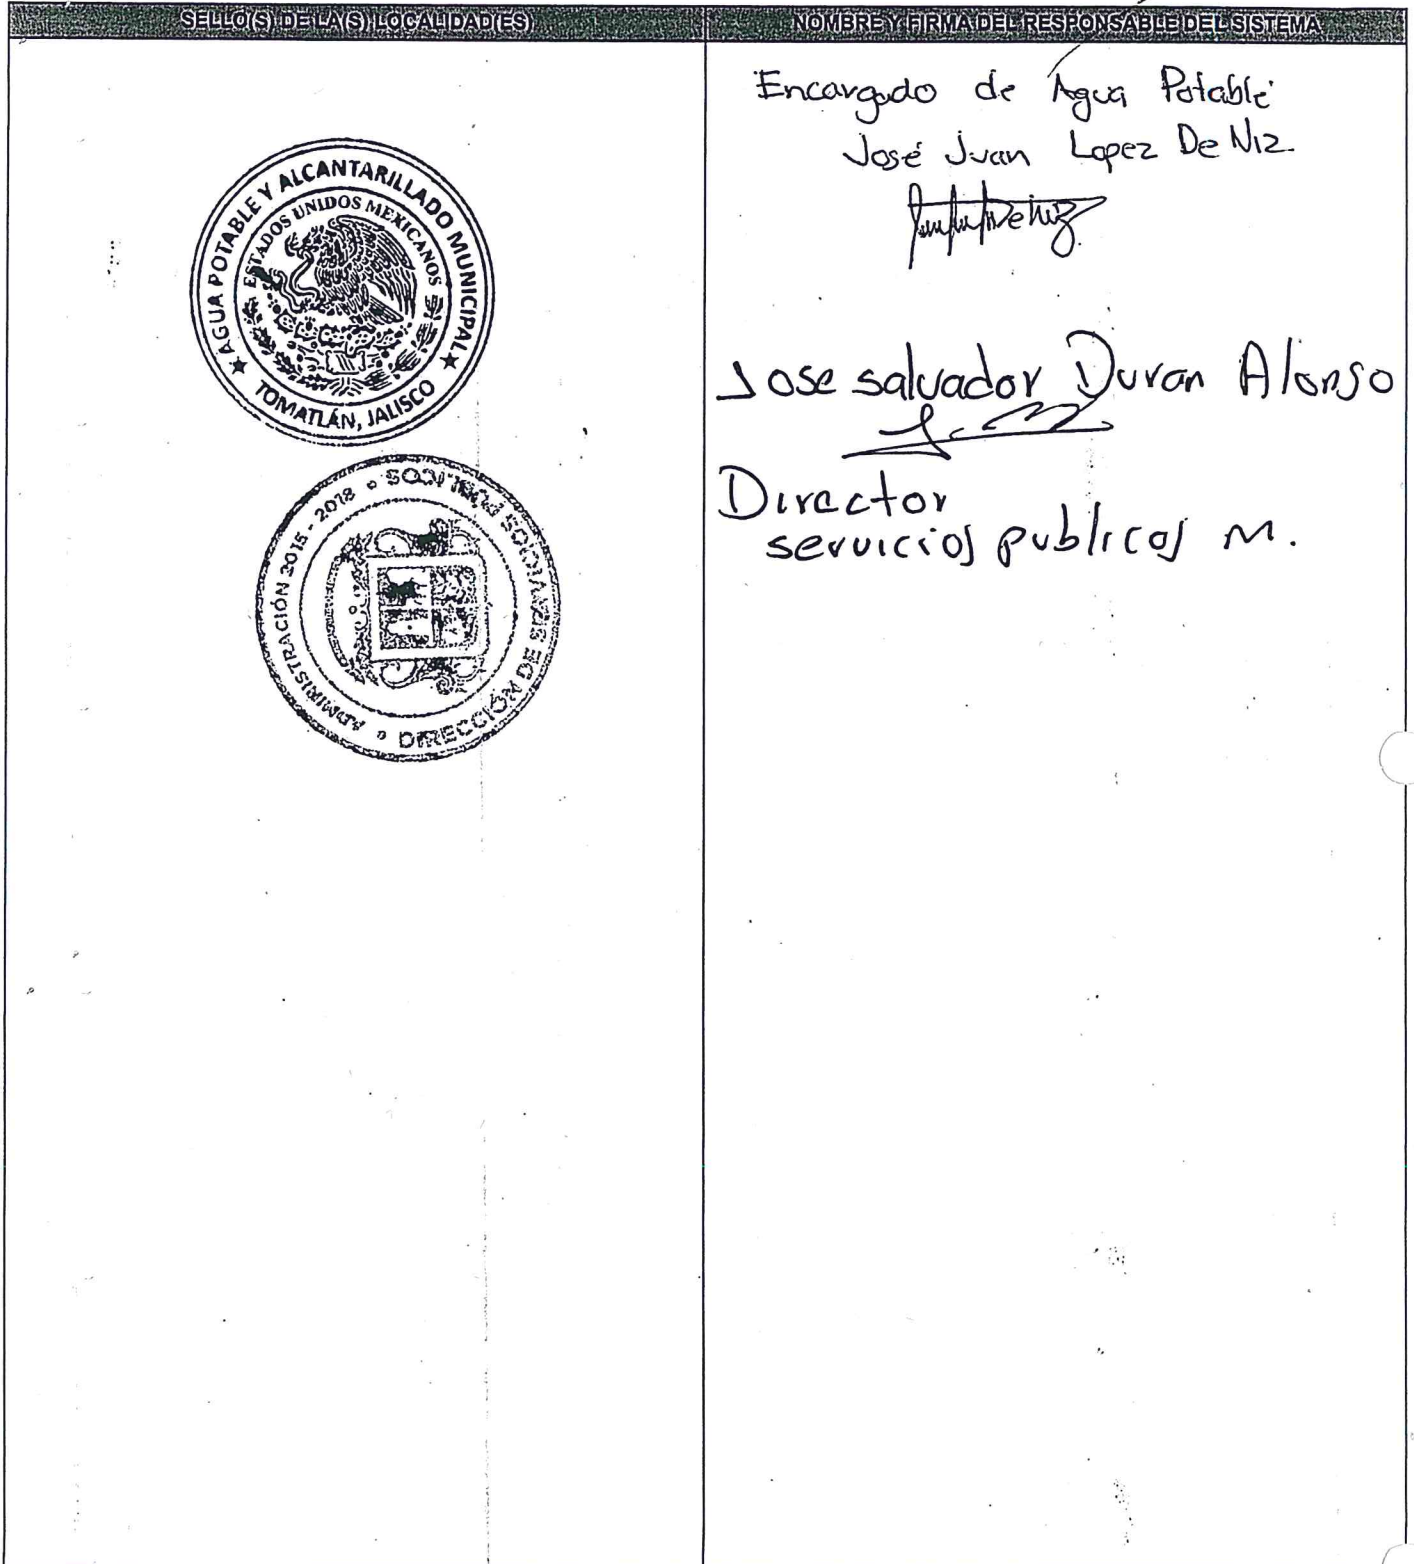 SELLO(S) DE LA(S) LOCALIDAD(ES)
AGUA POTABLE Y ALCANTARILLADO MUNICIPAL
ESTADOS UNIDOS MEXICANOS
TOMATLÁN, JALISCO
DIRECCIÓN DE SERVICIOS PÚBLICOS
ADMINISTRACIÓN 2015 - 2018
NOMBRE Y FIRMA DEL RESPONSABLE DEL SISTEMA
Encargado de Agua Potable
José Juan Lopez De Niz
Jose salvador Duran Alonso
Director
servicios publicos M.